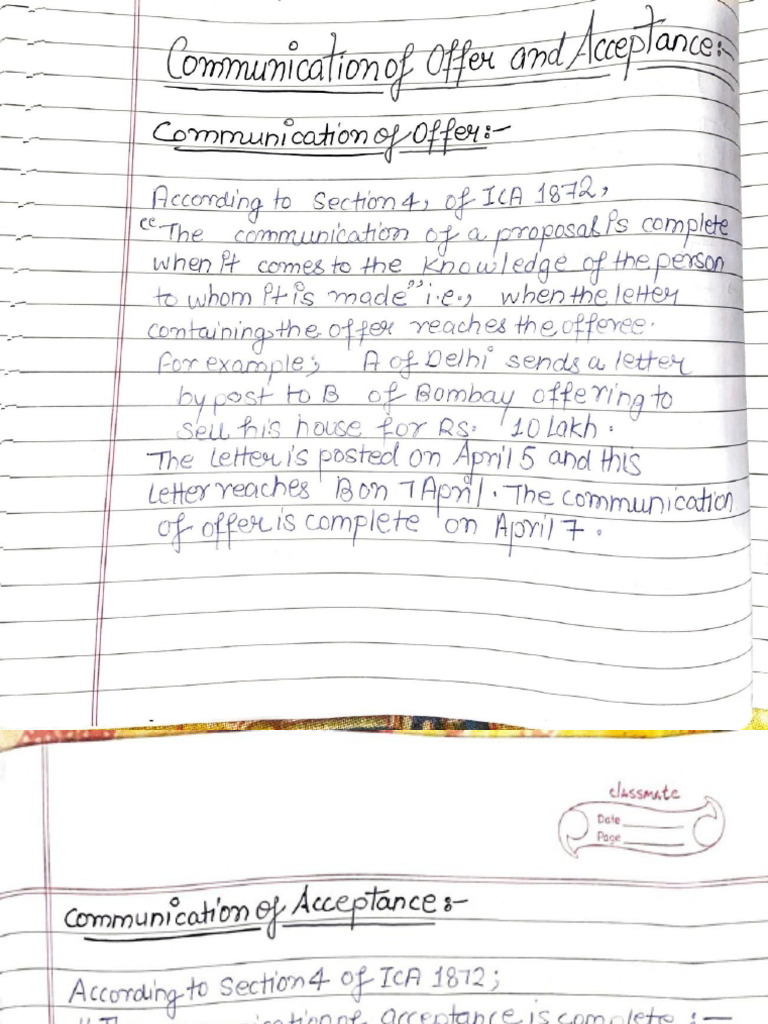 Communication of Offer and Acceptance:-
Communication of Offer:-
According to Section 4, of ICA 1872,
"The communication of a proposal is complete
when it comes to the knowledge of the person
to whom it is made" i.e., when the letter
containing the offer reaches the offeree.
For example; A of Delhi sends a letter
by post to B of Bombay offering to
sell his house for Rs. 10 Lakh.
The letter is posted on April 5 and this
letter reaches B on 7 April. The communication
of offer is complete on April 7.
classmate
Date
Page
Communication of Acceptance:-
According to Section 4 of ICA 1872;
acceptance is complete :-